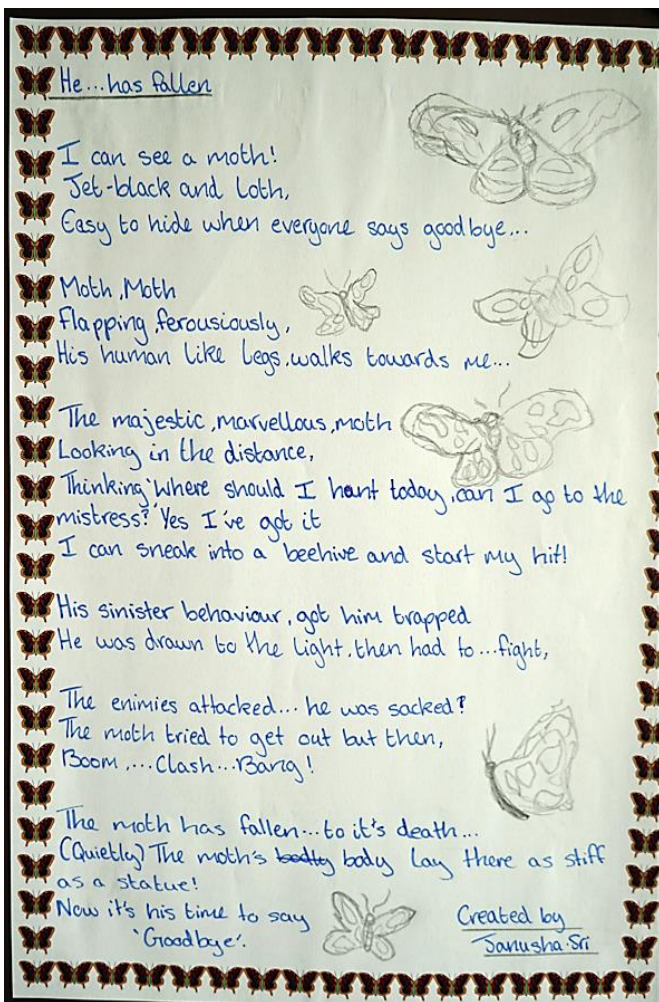 He...has fallen
I can see a moth!
Jet-black and Loth,
Easy to hide when everyone says goodbye...
Moth, Moth
Flapping, ferousiously,
His human like legs, walks towards me...
The majestic, marvellous, moth
Looking in the distance,
Thinking 'Where should I hant today, can I go to the
mistress?' Yes I've got it
I can sneak into a beehive and start my hit!
His sinister behaviour, got him trapped
He was drawn to the light, then had to...fight,
The enimies attacked... he was sacked?
The moth tried to get out but then,
Boom,...Clash...Bang!
The moth has fallen...to it's death...
(Quietly) The moth's body lay there as stiff
as a statue!
Now it's his time to say
'Goodbye'.
Created by
Janusha.Sri